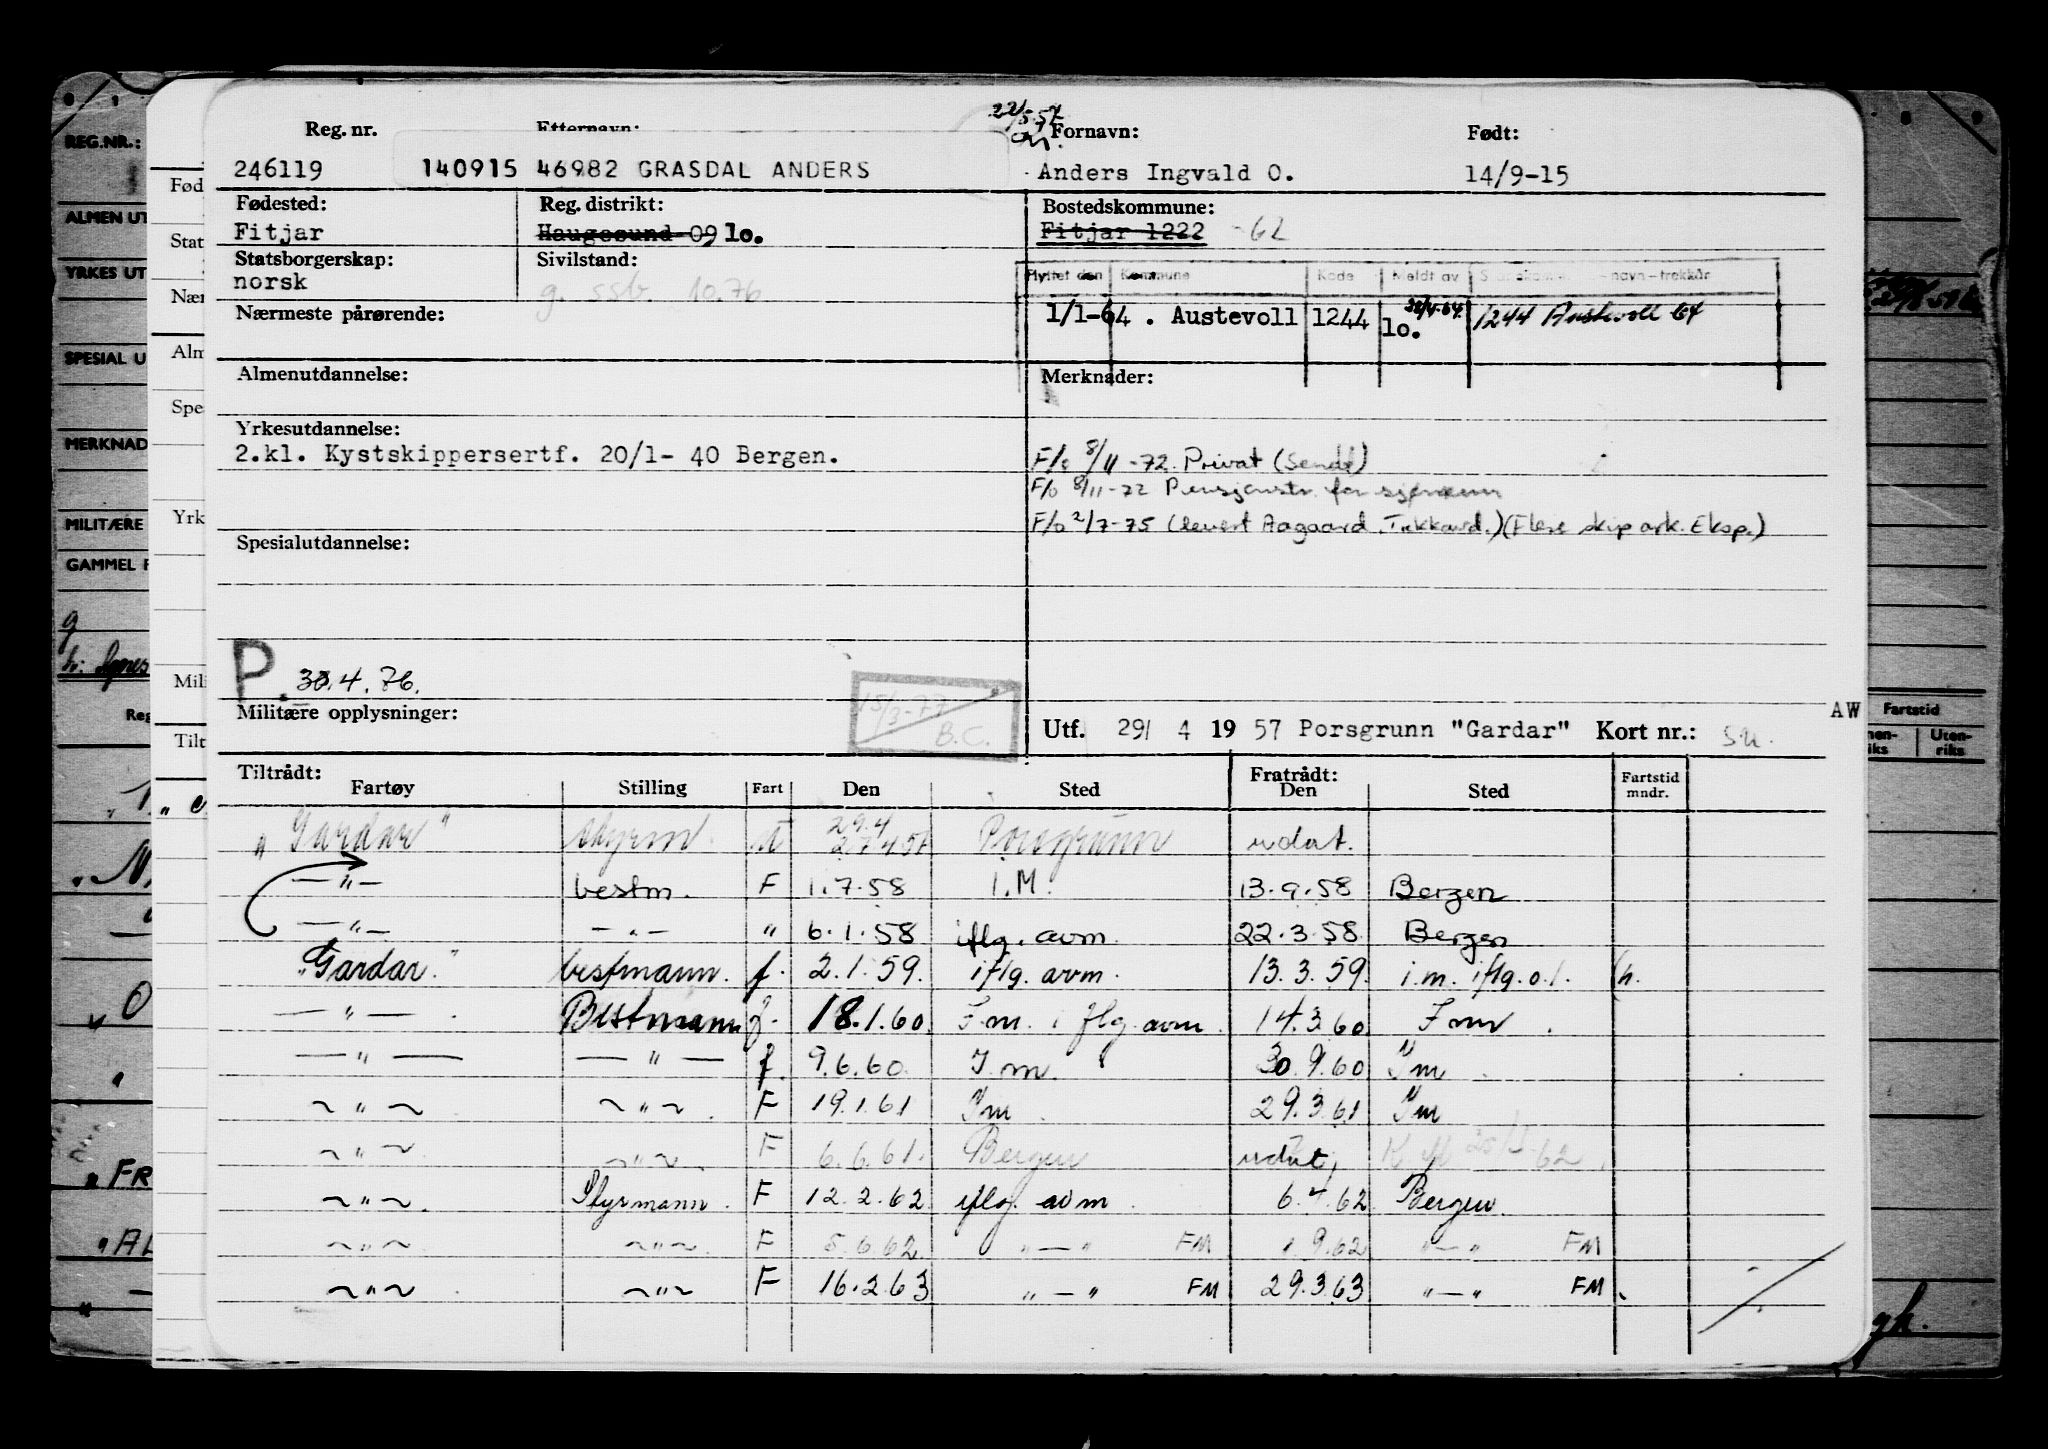 22/5-57
Reg. nr. Etternavn: Fornavn: Født:
246119 140915 46982 GRASDAL ANDERS Anders Ingvald O. 14/9-15
Fødested: Reg. distrikt: Bostedskommune:
Fitjar Haugesund 09 lo. Fitjar 1222 -62
Statsborgerskap: Sivilstand: Flyttet den Kommune Kode Meldt av navn-trekkår
norsk g. ssb. 10.76
Nærmeste pårørende: 1/1-64. Austevoll 1244 lo. 1244 Austevoll 64
Almenutdannelse: Merknader:
Yrkesutdannelse:
2.kl. Kystskippersertf. 20/1- 40 Bergen. F/o 8/11-72 Privat (Sendt)
F/o 8/11-72 Pensjonstr. for sjømenn
F/o 2/7-75 (levert Aagaard Trekkavd.) (Flere skip ark. Eksp.)
Spesialutdannelse:
P. 30.4.76.
15/3-77
B.C.
Militære opplysninger: Utf. 29/ 4 19 57 Porsgrunn "Gardar" Kort nr.:
AW
Tiltrådt: Fratrådt:
Fartøy Stilling Fart Den Sted Den Sted Fartstid mndr.
"Gardar" styrm. U 29.4 27.4.57 Porsgrunn udat.
—"— bestm. F 1.7.58 I.M. 13.9.58 Bergen
—"— —"— " 6.1.58 iflg. avm. 22.3.58 Bergen
"Gardar." bestmann. f. 2.1.59. iflg. avm. 13.3.59. i.m. iflg. o.l. h.
—"— Bestmann f. 18.1.60. I.m. iflg. avm. 14.3.60 I m.
—"— —"— f. 9.6.60. I.m. 30.9.60 Im
~"~ ~"~ F 19.1.61 Im 29.3.61 Im
~"~ ~"~ F 6.6.61. Bergen udat,
~"~ Styrmann F 12.2.62 iflg. avm 6.4.62 Bergen.
~"~ ~"~ F 5.6.62. "—" FM 1.9.62 "—" FM
~"~ ~"~ F 16.2.63 "—" FM 29.3.63 "—" FM
REG.NR.:
ALMEN UT
YRKES UT
SPESIAL U
MERKNAD
MILITÆRE
GAMMEL
Fød
Stat
Nær
Alm
Spe
Yrk
Mili
Tilt
Fartstid
Uten-
riks